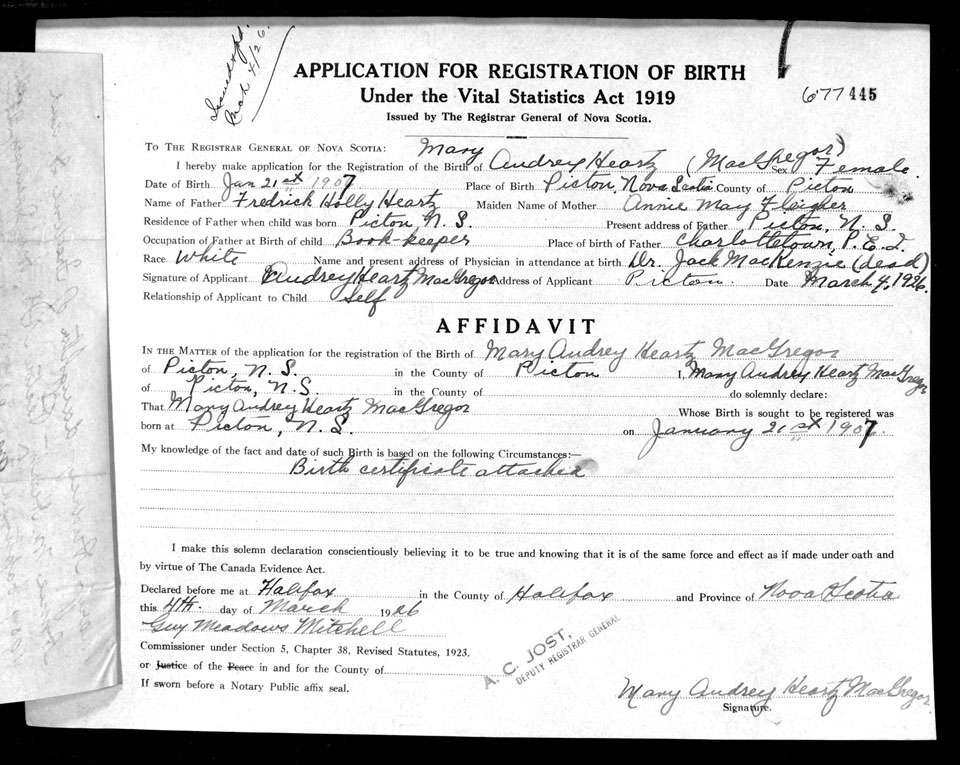 Issued
Mch 4/26.
APPLICATION FOR REGISTRATION OF BIRTH
Under the Vital Statistics Act 1919
677445
Issued by The Registrar General of Nova Scotia.
TO THE REGISTRAR GENERAL OF NOVA SCOTIA:
Mary
I hereby make application for the Registration of the Birth of Audrey Heartz (MacGregor) Sex Female.
Date of Birth Jan 21st 1907 Place of Birth Pictou, Nova Scotia County of Pictou
Name of Father Fredrick Holly Heartz Maiden Name of Mother Annie May
Residence of Father when child was born Pictou, N.S. Present address of Father Pictou, N.S.
Occupation of Father at Birth of child Book-keeper Place of birth of Father Charlottetown, P.E.I.
Race White Name and present address of Physician in attendance at birth Dr. Jack MacKenzie (dead)
Signature of Applicant Audrey Heartz MacGregor Address of Applicant Pictou. Date March 4, 1926.
Relationship of Applicant to Child Self
AFFIDAVIT
IN THE MATTER of the application for the registration of the Birth of Mary Audrey Heartz MacGregor
of Pictou, N.S. in the County of Pictou I, Mary Audrey Heartz MacGregor
of Pictou, N.S. in the County of do solemnly declare:
That Mary Audrey Heartz MacGregor Whose Birth is sought to be registered was
born at Pictou, N.S. on January 21st 1907.
My knowledge of the fact and date of such Birth is based on the following Circumstances:—
Birth certificate attached
I make this solemn declaration conscientiously believing it to be true and knowing that it is of the same force and effect as if made under oath and
by virtue of The Canada Evidence Act.
Declared before me at Halifax in the County of Halifax and Province of Nova Scotia
this 4th. day of March 1926
Guy Meadows Mitchell
Commissioner under Section 5, Chapter 38, Revised Statutes, 1923,
or Justice of the Peace in and for the County of
If sworn before a Notary Public affix seal.
A. C. JOST,
DEPUTY REGISTRAR GENERAL
Mary Audrey Heartz MacGregor
Signature.